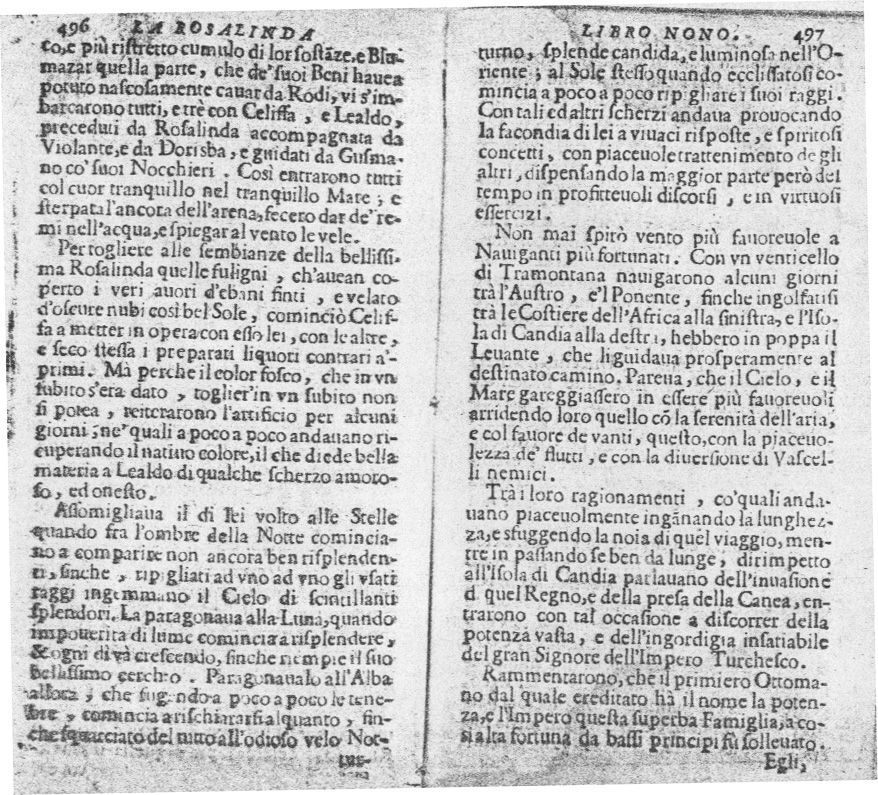 496 LA ROSALINDA
co, e più ristretto cumulo di lor sostāze. e Blu-
mazar quella parte, che de' suoi Beni hauea
potuto nascosamente cauar da Rodi, vi s'im-
barcarono tutti, e trè con Celissa, e Lealdo,
preceduti da Rosalinda accompagnata da
Violante, e da Dorisba, e guidati da Gusma-
no co' suoi Nocchieri. Così entrarono tutti
col cuor tranquillo nel tranquillo Mare; e
sterpata l'ancora dell'arena, fecero dar de' re-
mi nell'acqua, e spiegar al vento le vele.
Per togliere alle sembianze della bellissi-
ma Rosalinda quelle fuligni, ch'auean co-
perto i veri auori d'ebani finti, e velato
d'oscure nubi così bel Sole, cominciò Celis-
sa a metter in opera con esso lei, con le altre,
e seco stessa i preparati liquori contrari a'-
primi. Mà perche il color fosco, che in vn
subito s'era dato, toglier'in vn subito non
si potea, reiterarono l'artificio per alcuni
giorni; ne' quali a poco a poco andauano ri-
cuperando il natiuo colore, il che diede bella
materia a Lealdo di qualche scherzo amoro-
so, ed onesto.
Assomigliaua il di lei volto alle Stelle
quando fra l'ombre della Notte comincia-
no a comparire non ancora ben risplenden-
ti, finche, ripigliati ad vno ad vno gli vsati
raggi ingemmano il Cielo di scintillanti
splendori. La paragonaua alla Luna, quando
impouerita di lume comincia a risplendere,
& ogni dì và crescendo, finche riempie il suo
bellissimo cerchio. Paragonaualo all'Alba
allora, che fugando a poco a poco le tene-
bre, comincia a rischiararsi alquanto, fin-
che squarciato del tutto all'odioso velo Not-
tur-
LIBRO NONO. 497
turno, splende candida, e luminosa nell'O-
riente; al Sole stesso quando ecclissatosi co-
mincia a poco a poco ripigliare i suoi raggi.
Con tali ed altri scherzi andaua prouocando
la facondia di lei a viuaci risposte, e spiritosi
concetti, con piaceuole trattenimento degli
altri, dispensando la maggior parte però del
tempo in profitteuoli discorsi, e in virtuosi
essercizi.
Non mai spirò vento più fauoreuole a
Nauiganti più fortunati. Con vn venticello
di Tramontana nauigarono alcuni giorni
trà l'Austro, e'l Ponente, finche ingolfatisi
trà le Costiere dell'Africa alla sinistra, e l'Iso-
la di Candia alla destra, hebbero in poppa il
Leuante, che li guidaua prosperamente al
destinato camino. Pareua, che il Cielo, e il
Mare gareggiassero in essere più fauoreuoli
arridendo loro quello cō la serenità dell'aria,
e col fauore de vanti, questo, con la piaceuo-
lezza de' flutti, e con la diuersione di Vascel-
li nemici.
Trà i loro ragionamenti, co' quali anda-
uano piaceuolmente ingānando la lunghez-
za, e sfuggendo la noia di quel viaggio, men-
tre in passando se ben da lunge, dirimpetto
all'Isola di Candia parlauano dell'inuasione
d quel Regno, e della presa della Canea, en-
trarono con tal occasione a discorrer della
potenza vasta, e dell'ingordigia insatiabile
del gran Signore dell'Impero Turchesco.
Rammentarono, che il primiero Ottoma-
no dal quale ereditato hà il nome la poten-
za, e l'Impero questa superba Famiglia, a co-
sì alta fortuna da bassi principi fù solleuato.
Egli,